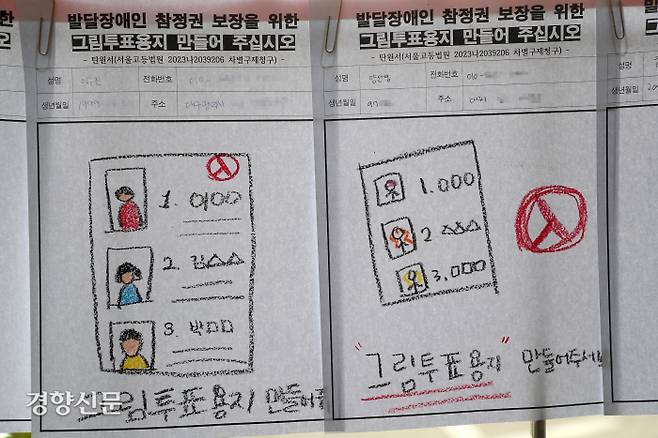 발달장애인 참정권 보장을 위한
그림투표용지 만들어 주십시오
- 탄원서(서울고등법원 2023나2039206 차별구제청구) -
성명
전화번호 010-
생년월일
주소
1. 이OO
2. 김△△
3. 박□□
그림투표용지 만들어
발달장애인 참정권 보장을 위한
그림투표용지 만들어 주십시오
- 탄원서(서울고등법원 2023나2039206 차별구제청구) -
성명
전화번호 010-
생년월일
주소
1. OOO
2 △△△
3. □□□
"그림투표용지" 만들어주세
경향신문